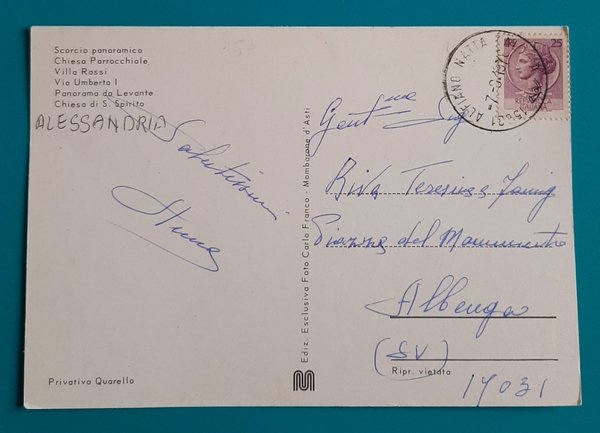 Scorcio panoramico
Chiesa Parrocchiale
Villa Rossi
Via Umberto I
Panorama da Levante
Chiesa di S. Spirito
ALESSANDRIA
Salutissimi
Ediz. Esclusiva Foto Carlo Franco - Mombarone d'Asti
25
15021 ALFIANO NATTA
Gent.me Sig.
Riva Teresina e
Piazza del Monumento
Albenga
(SV)
Ripr. vietata
17031
Privativa Quarello